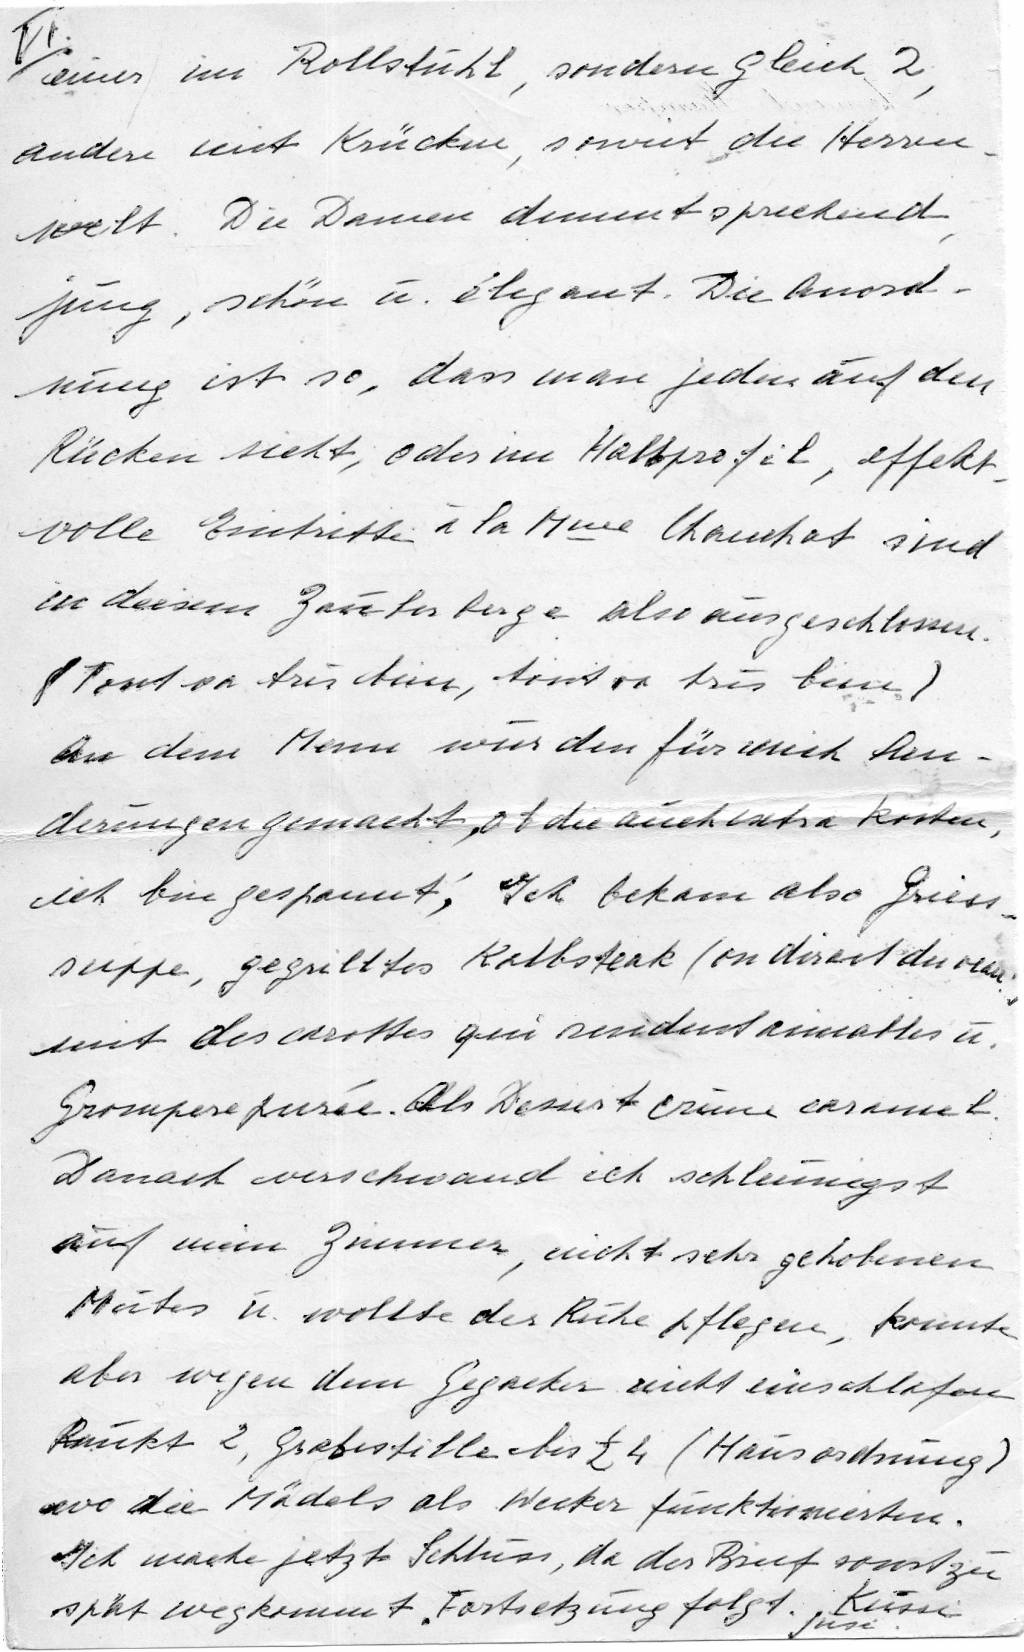 VI.
einer im Rollstuhl, sondern gleich 2,
andere mit Krücken, soweit die Herren-
welt. Die Damen dementsprechend,
jung, schön u. élégant. Die Anord-
nung ist so, dass man jeden auf den
Rücken sieht, oder im Halbprofil, effekt-
volle Eintritte à la Mme Chauchat sind
in diesem Zauberberge also ausgeschlossen.
(Tout va très bien, tout va très bien)
An dem Menu wurden für mich Aen-
derungen gemacht, ob die auch extra kosten,
ich bin gespannt! Ich bekam also Griess-
suppe, gegrilltes Kalbsteak (on dirait du veau!)
mit des carottes qui rendent aimables u.
Gromperepurée. Als Dessert crème caramel.
Danach verschwand ich schleunigst
auf mein Zimmer, nicht sehr gehobenen
Mutes u. wollte der Ruhe pflegen, konnte
aber wegen dem Gegacker nicht einschlafen
Punkt 2, Grabesstille bis ½ 4 (Hausordnung)
wo die Mädels als Wecker funktionierten.
Ich mache jetzt Schluss, da der Brief sonst zu
spät wegkommt. Fortsetzung folgt. Küsse